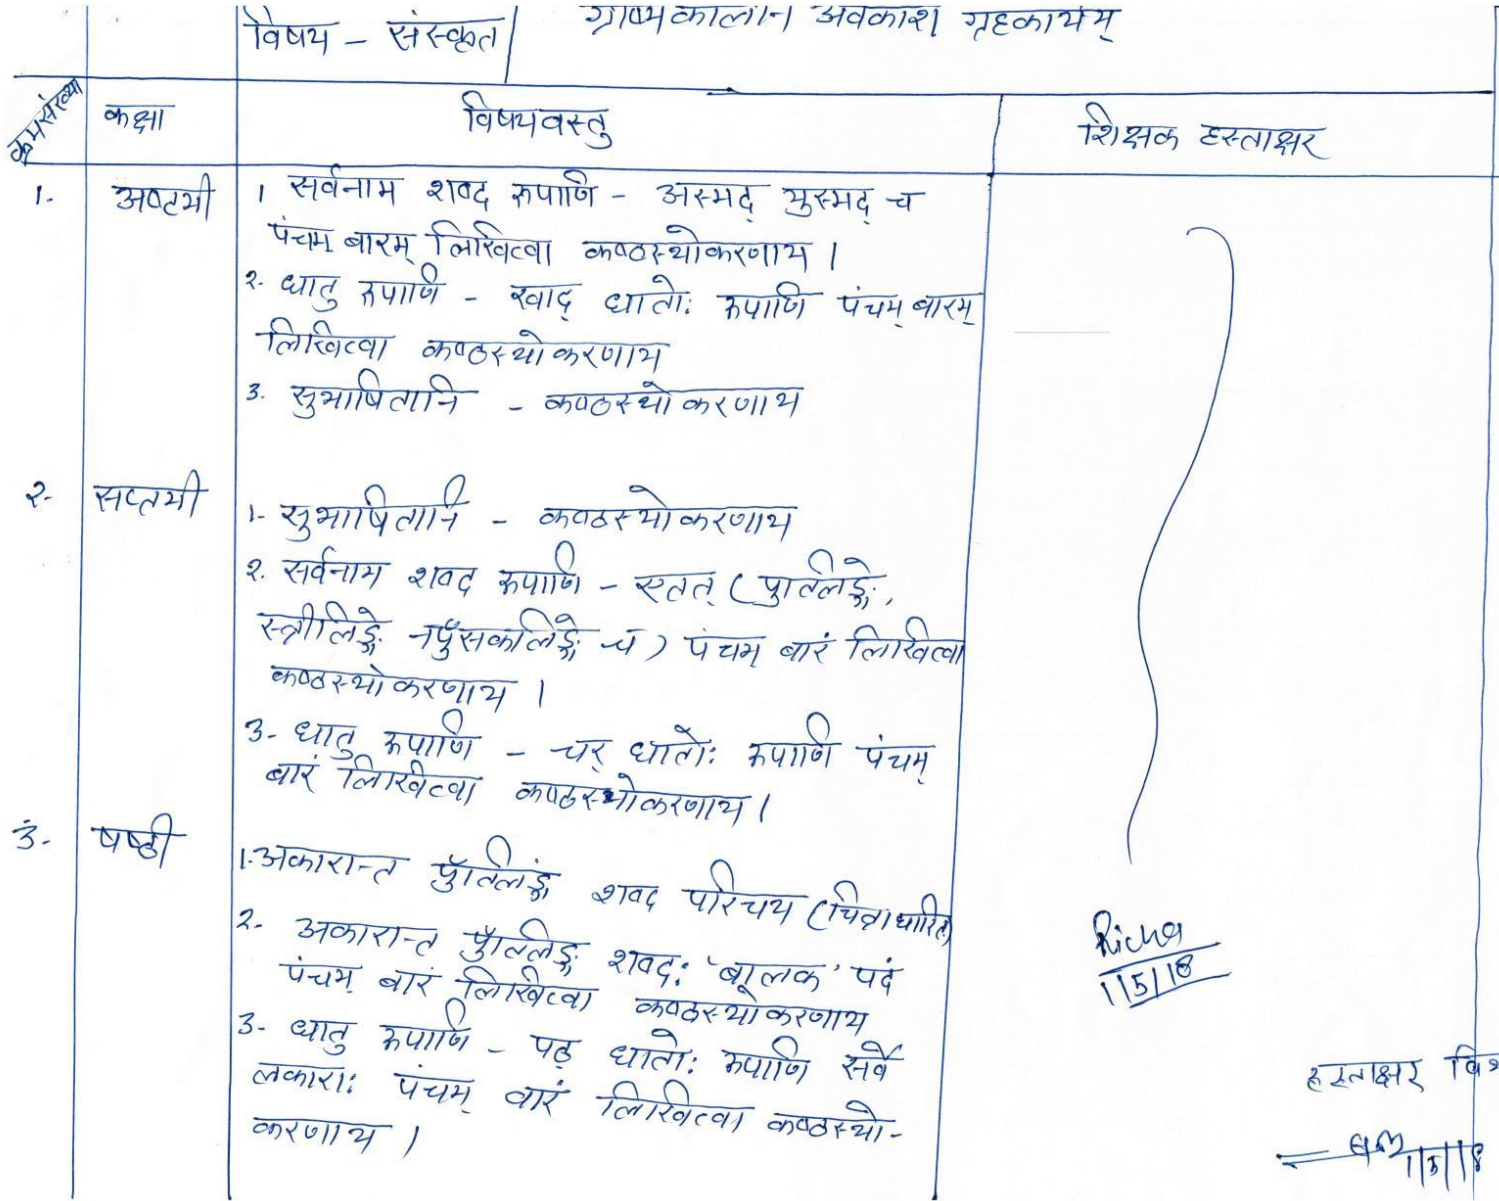 विषय - संस्कृत
ग्रीष्मकालीन अवकाश गृहकार्यम्
क्रमसंख्या कक्षा विषयवस्तु शिक्षक हस्ताक्षर
1. अष्टमी 1 सर्वनाम शब्द रूपाणि - अस्मद् युस्मद् च
पंचम बारम् लिखित्वा कण्ठस्थीकरणाय ।
२. धातु रूपाणि - खाद् धातो: रूपाणि पंचम् बारम्
लिखित्वा कण्ठस्थीकरणाय
3. सुभाषितानि - कण्ठस्थीकरणाय
२- सप्तमी 1- सुभाषितानि - कण्ठस्थीकरणाय
२. सर्वनाम शब्द रूपाणि - एतत् (पुल्लिङ्गे,
स्त्रीलिङ्गे नपुँसकलिङ्गे च) पंचम् बारं लिखित्वा
कण्ठस्थीकरणाय ।
3- धातु रूपाणि - चर् धातो: रूपाणि पंचम्
बारं लिखित्वा कण्ठस्थीकरणाय ।
3- षष्ठी
1. अकारान्त पुँल्लिंङ्ग शब्द परिचय (चित्राधारित)
2- अकारान्त पुँल्लिङ्ग शब्द: 'बालक' पदं
पंचम् बारं लिखित्वा कण्ठस्थीकरणाय
3- धातु रूपाणि - पठ् धातो: रूपाणि सर्वे
लकारा: पंचम् वारं लिखित्वा कण्ठस्थी-
करणाय ।
Richa
1/5/18
हस्ताक्षर
1/5/18